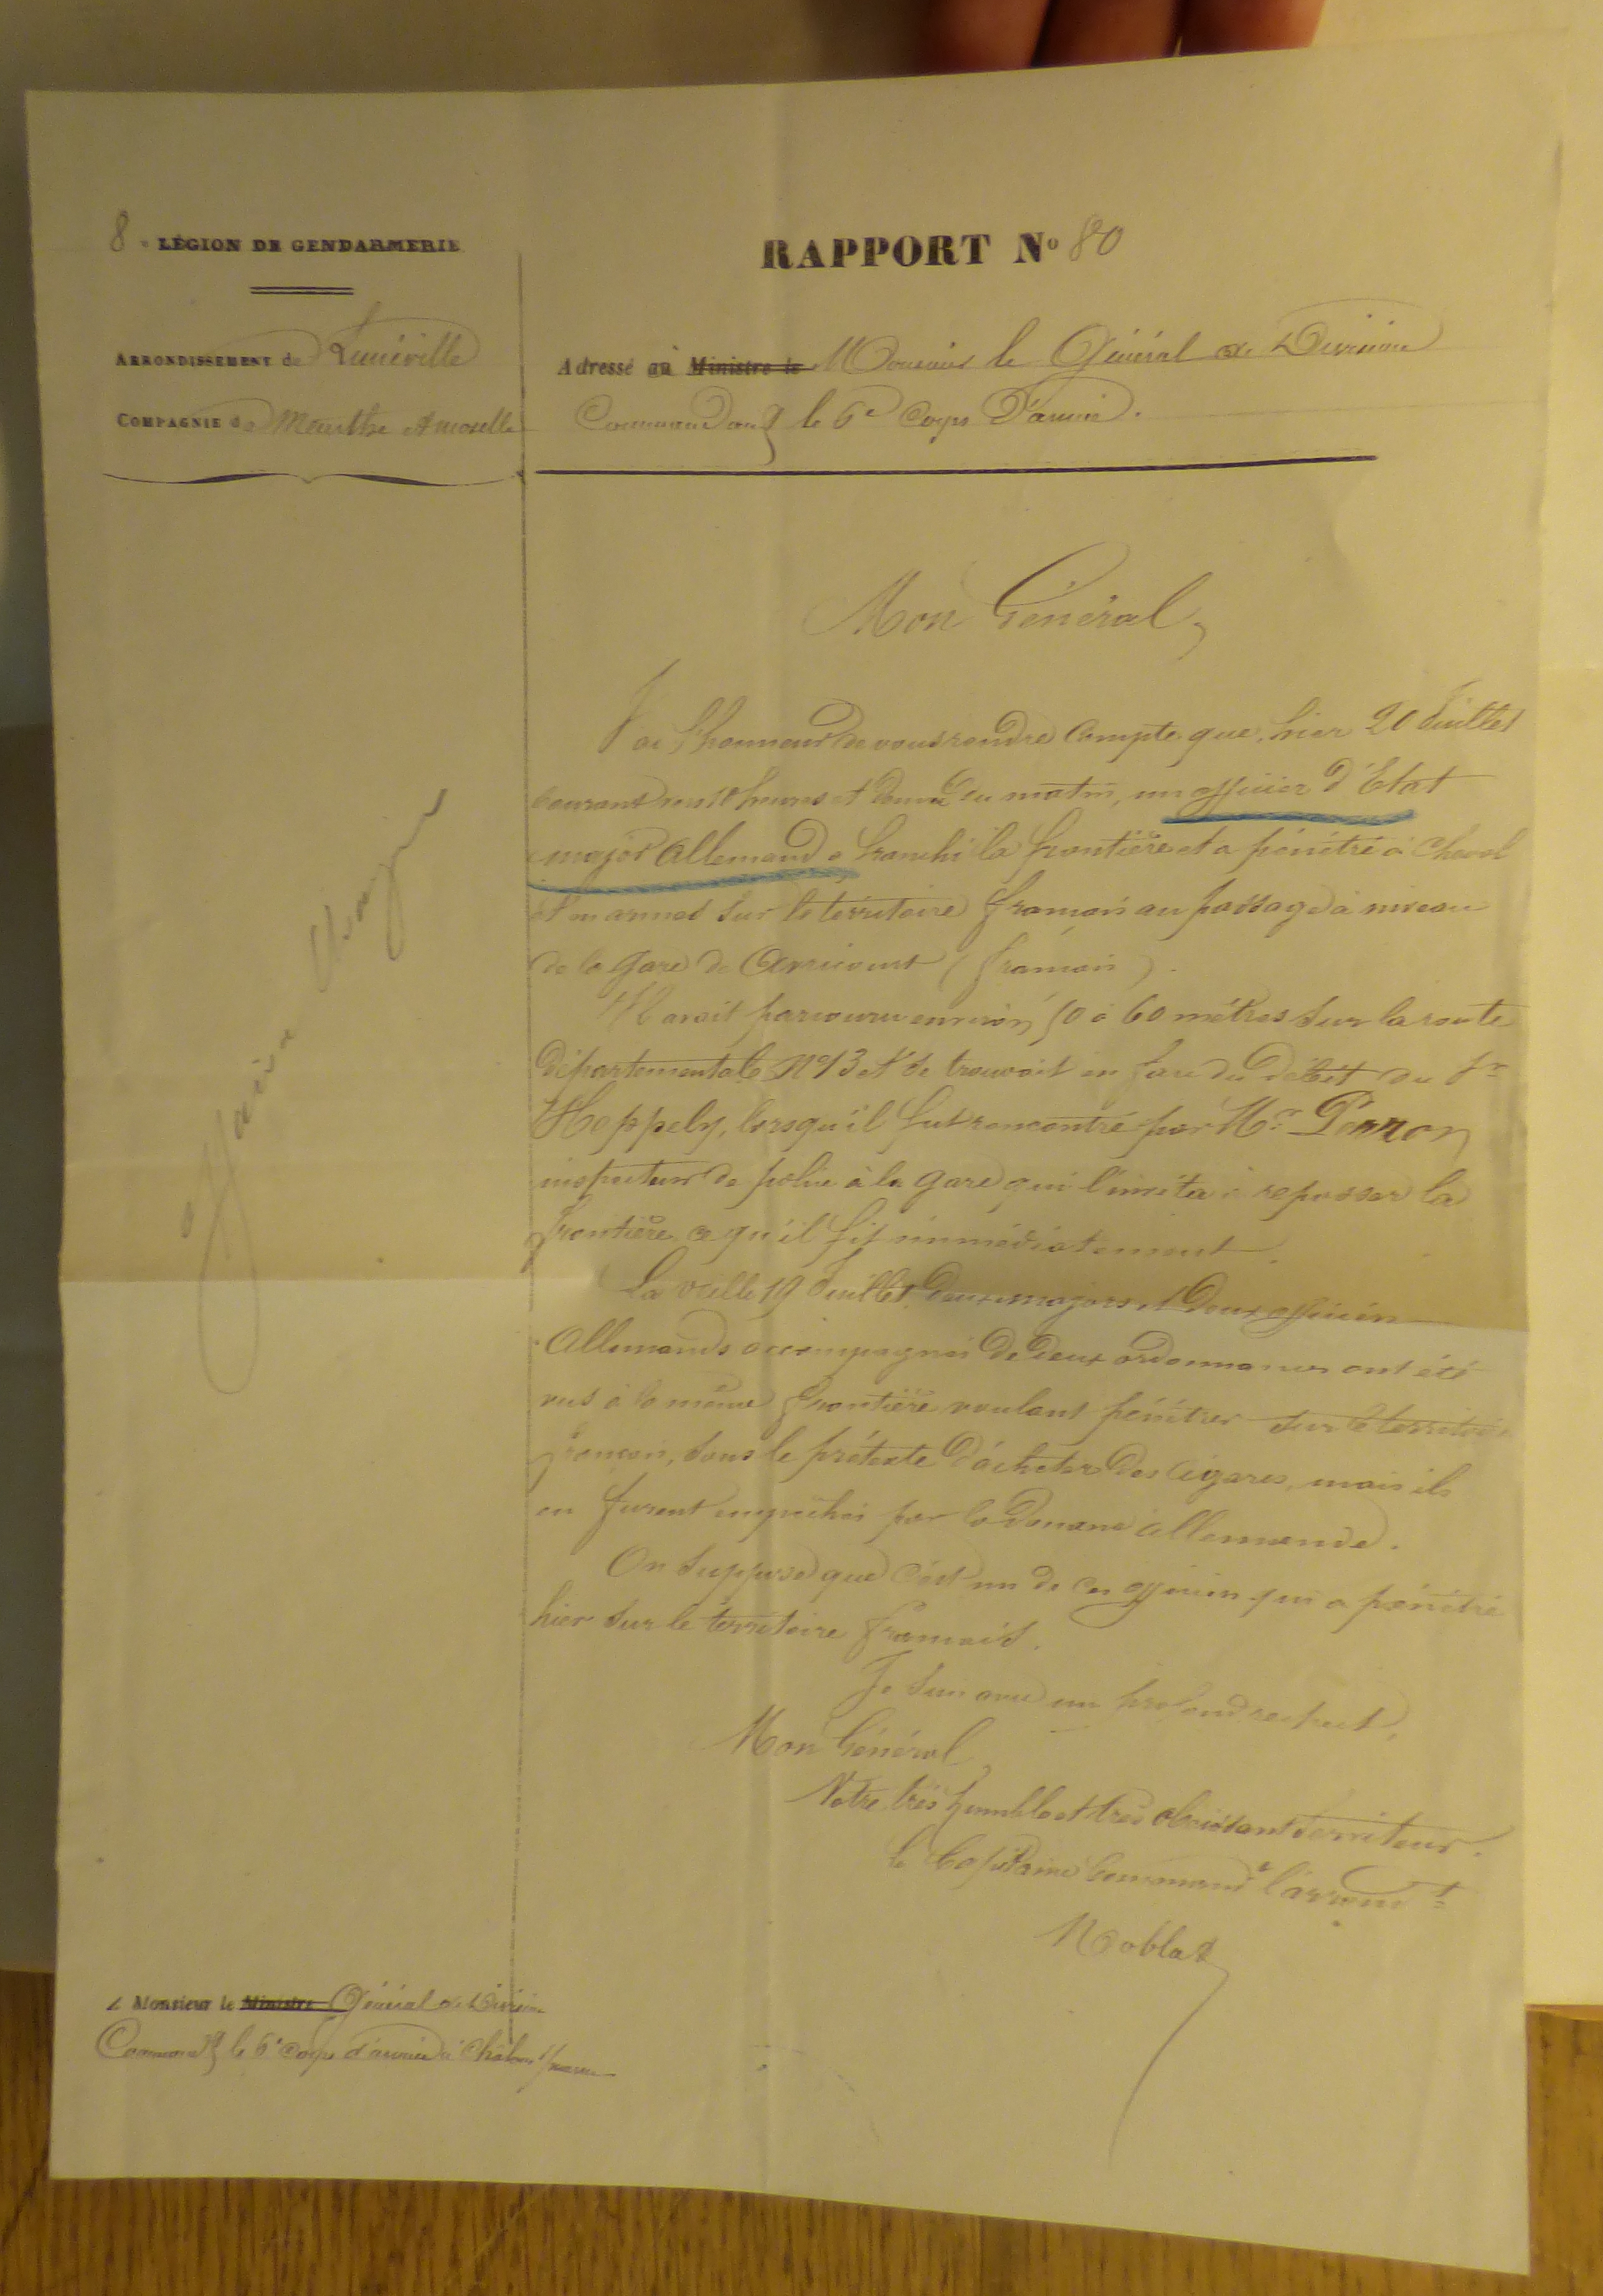 8e LÉGION DE GENDARMERIE
ARRONDISSEMENT de Lunéville
COMPAGNIE de Meurthe & Moselle
RAPPORT No 80
Adressé au à Ministre le Monsieur le Général de Division
Command ant le 6e Corps d'armée.
Mon Général,
J'ai l'honneur de vous rendre compte que, hier 20 Juillet
courant vers 10 heures et demie du matin, un officier d'Etat
major Allemand a franchi la frontière et a pénétré à cheval
et en armes sur le territoire français au passage à niveau
de la gare de Avricourt (français).
Il avait parcouru environ 50 à 60 mètres sur la route
départementale No 3 et se trouvait en face du débit du Sr
Hoppely, lorsqu'il fut rencontré par Mr Perron
inspecteur de police à la gare, qui l'invita à repasser la
frontière, ce qu'il fit immédiatement.
La veille 19 Juillet, deux majors et deux officiers
Allemands accompagnés de deux ordonnances ont été
vus à la même frontière voulant pénétrer sur le territoire
français, sous le prétexte d'acheter des cigares, mais ils
en furent empêchés par la douane allemande.
On suppose que c'est un de ces officiers qui a pénétré
hier sur le territoire français.
Je suis avec un profond respect,
Mon Général,
Votre très humble et très obéissant serviteur.
le Capitaine Commandt l'arrondt
Noblat
A Monsieur le Ministre Général de Division
Commandt le 6e Corps d'armée à Châlons s/marne